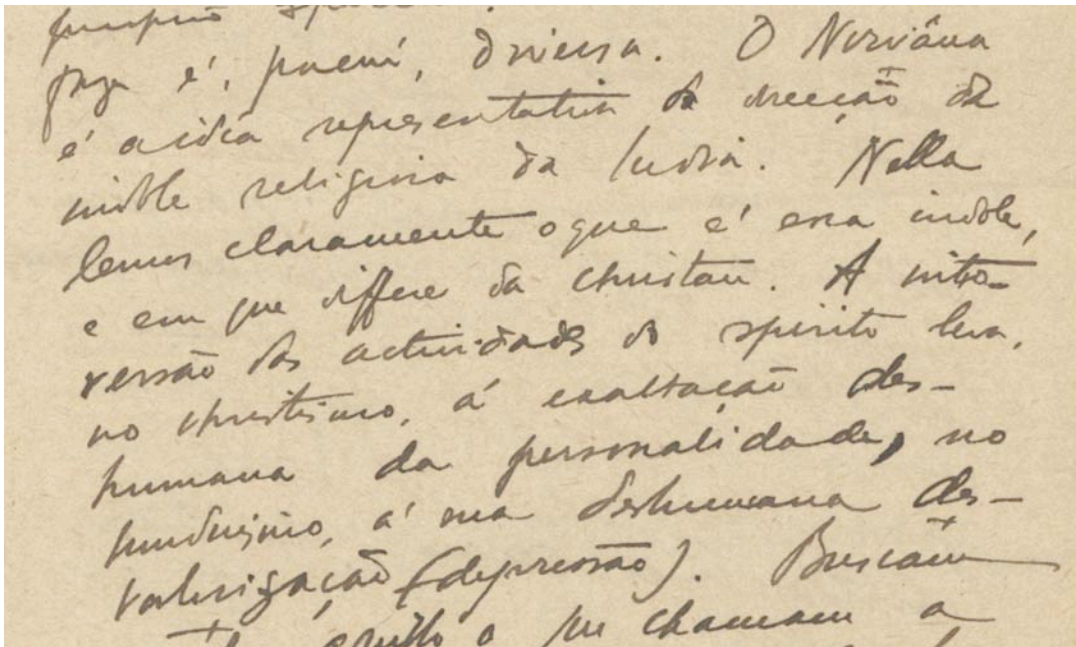 fuga é, porém, diversa. O Nirvâna
é a idéa representativa da direcção da
indole religiosa da India. Nella
lemos claramente o que é essa indole,
e em que differe da christan. A intro-
versão das actividades do espirito leva,
no christismo, á exaltação des-
humana da personalidade, no
hinduismo, á sua deshumana des-
valorização (depressão). Buscam
aquillo a que chamam a